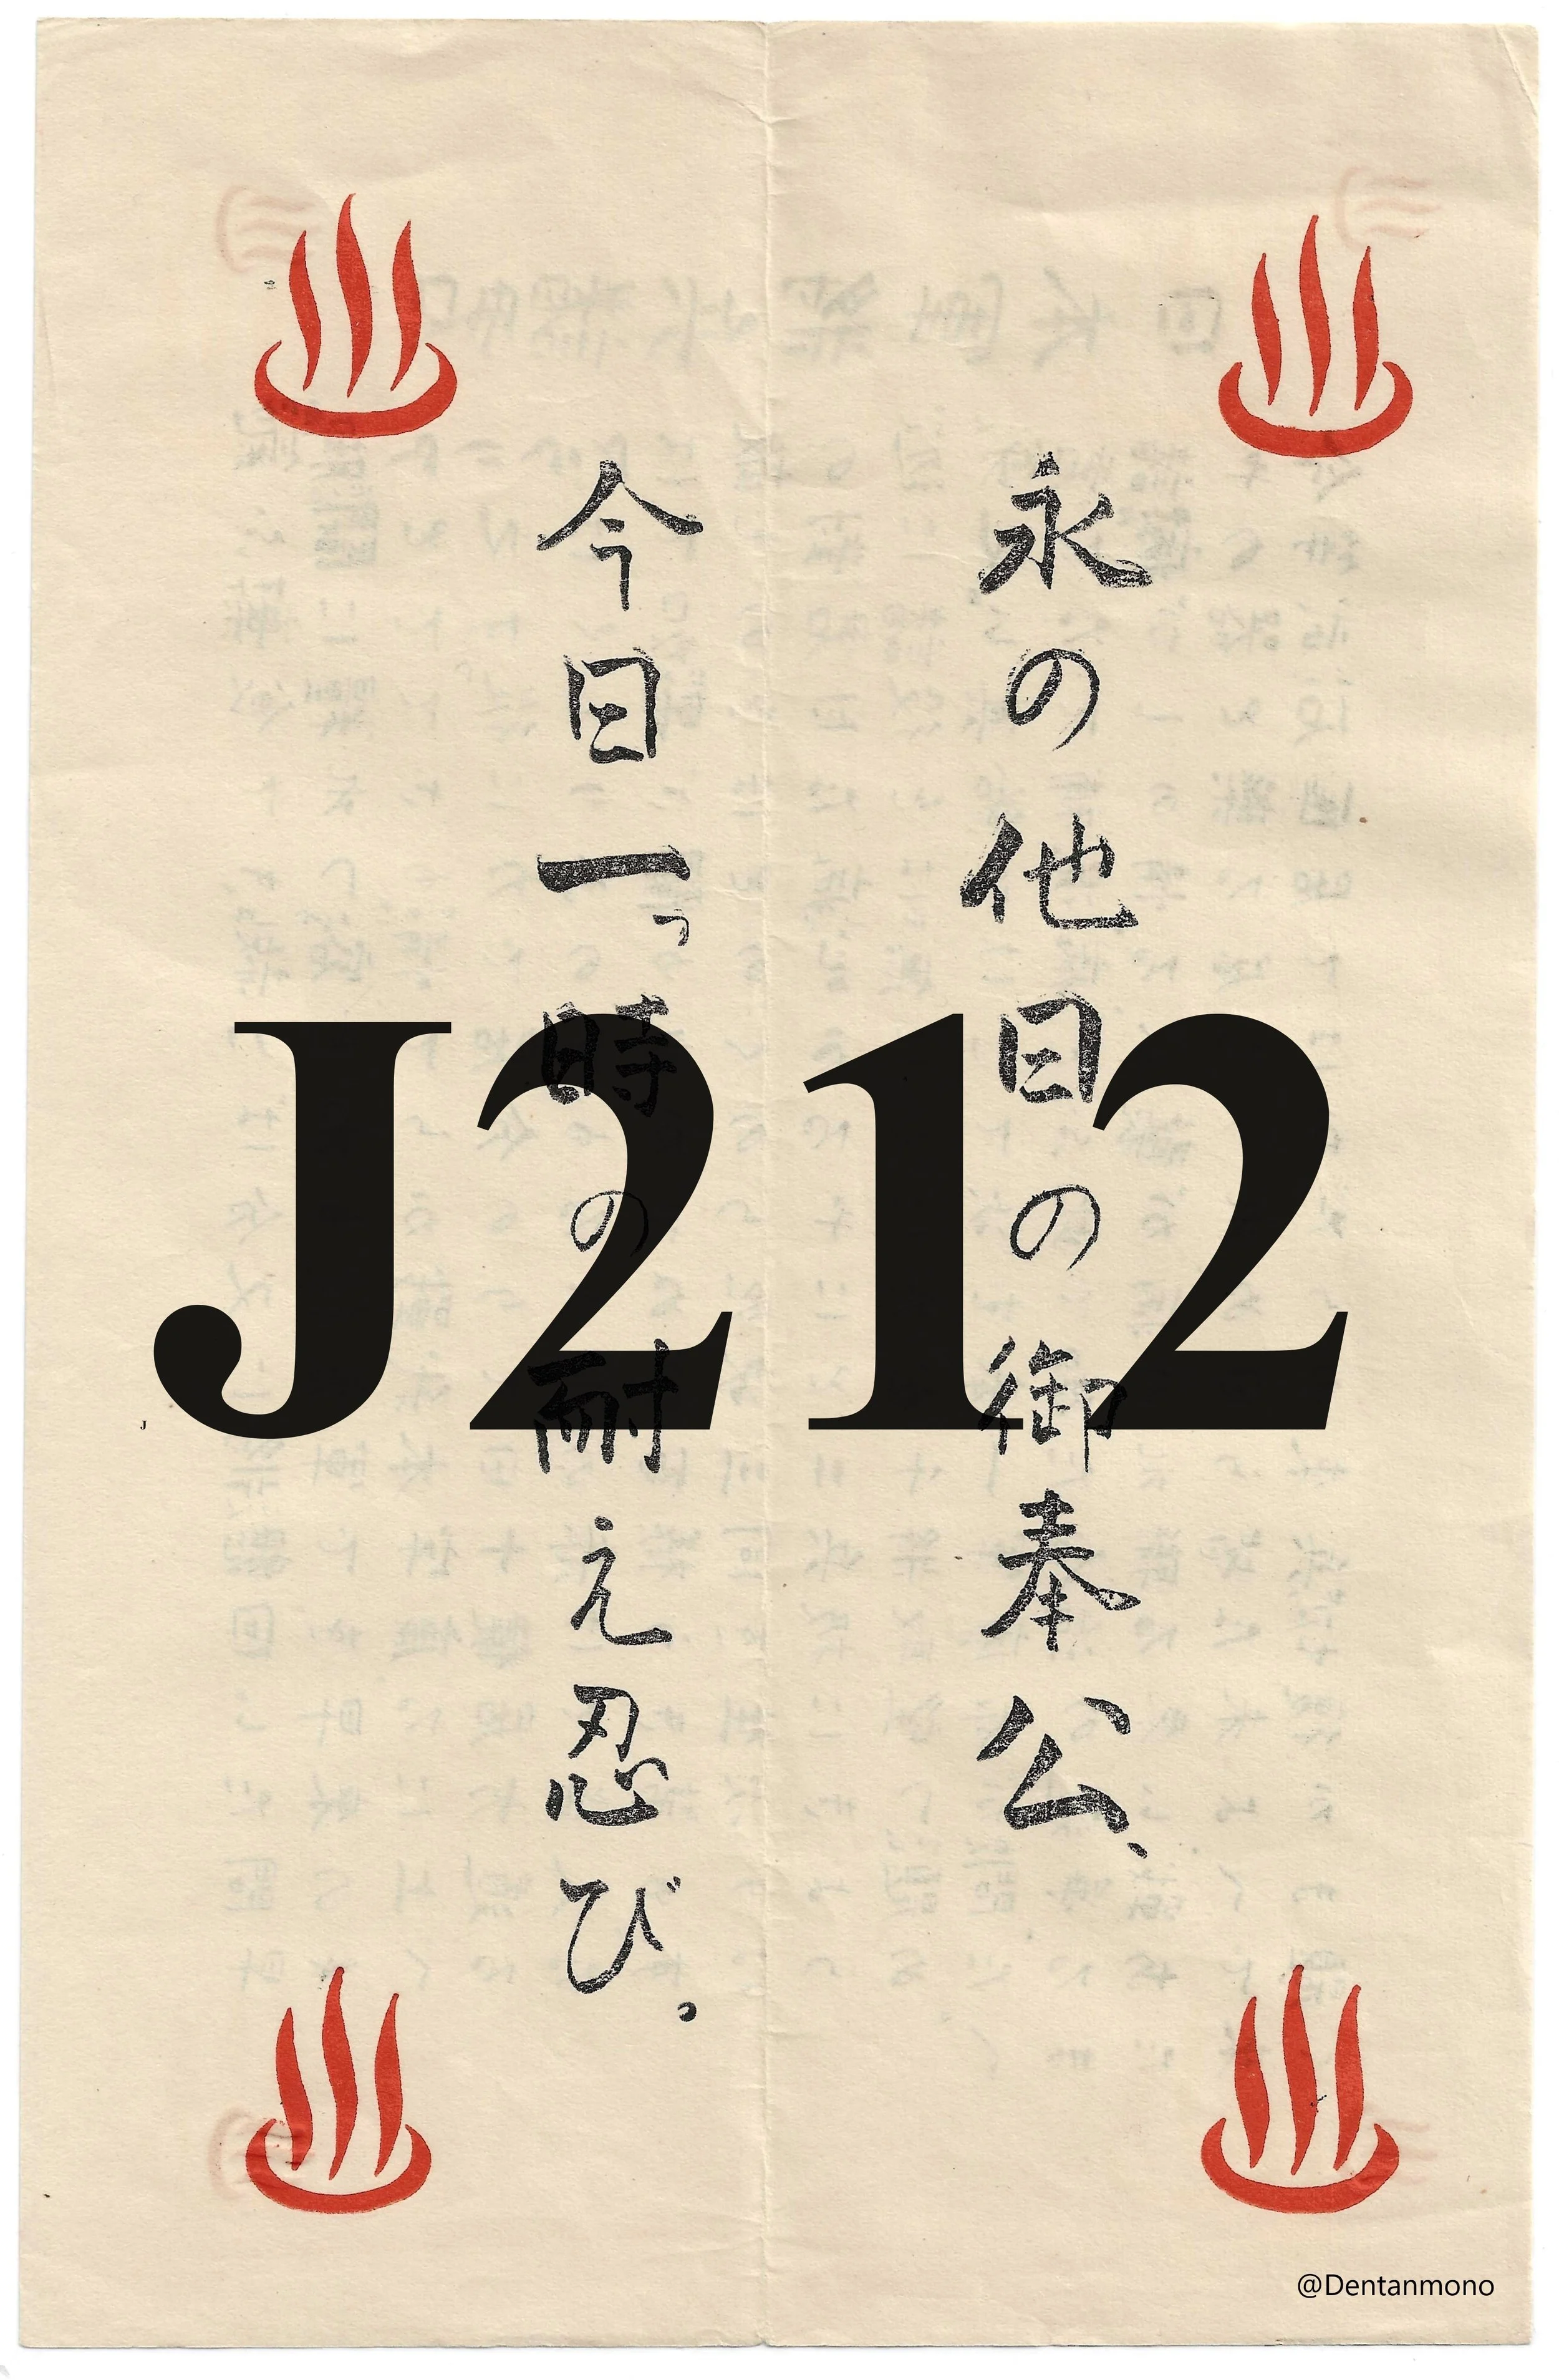 永の他日の御奉公、
今日一っ時の耐え忍び。
J212
J
@Dentanmono